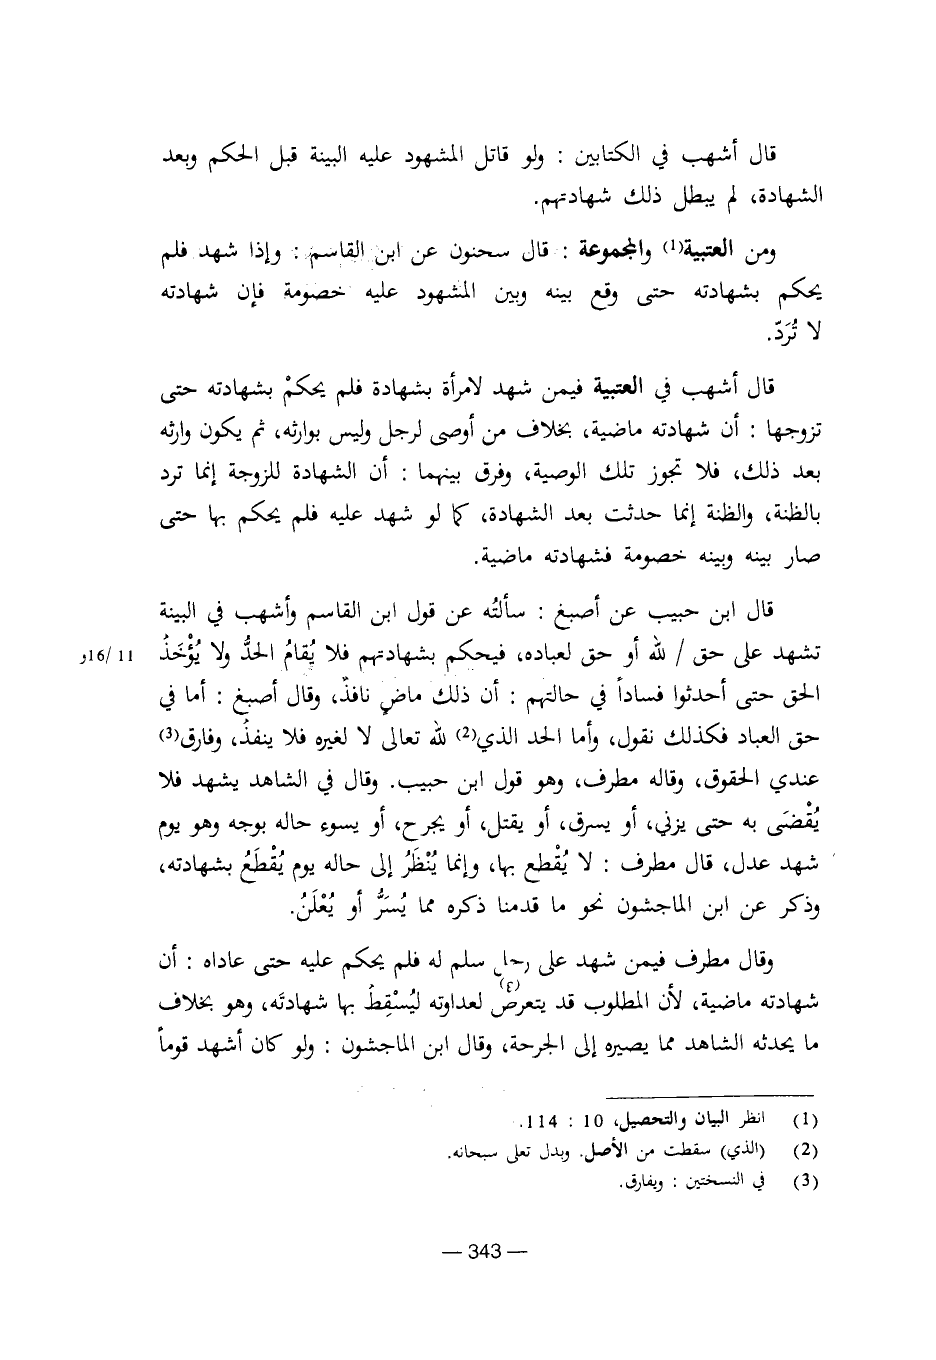 قال أشهب في الكتابين : ولو قاتل المشهود عليه البينة قبل الحكم وبعد
الشهادة، لم يبطل ذلك شهادتهم.
ومن العتبية(1) والمجموعة : قال سحنون عن ابن القاسم : وإذا شهد فلم
يحكم بشهادته حتى وقع بينه وبين المشهود عليه خصومة فإن شهادته
لا تُرَدّ.
قال أشهب في العتبية فيمن شهد لامرأة بشهادة فلم يحكمْ بشهادته حتى
تزوجها : أن شهادته ماضية، بخلاف من أوصى لرجل وليس بوارثه، ثم يكون وارثه
بعد ذلك، فلا تجوز تلك الوصية، وفرق بينهما : أن الشهادة للزوجة إنما ترد
بالظنة، والظنة إنما حدثت بعد الشهادة، كما لو شهد عليه فلم يحكم بها حتى
صار بينه وبينه خصومة فشهادته ماضية.
قال ابن حبيب عن أصبغ : سألتُه عن قول ابن القاسم وأشهب في البينة
تشهد على حق / لله أو حق لعباده، فيحكم بشهادتهم فلا يُقامُ الحدُّ ولا يُؤْخَذُ
11 /16و
الحق حتى أحدثوا فساداً في حالتهم : أن ذلك ماضٍ نافذٌ، وقال أصبغ : أما في
حق العباد فكذلك نقول، وأما الحد الذي(2) لله تعالى لا لغيره فلا ينفذُ، وفارق(3)
عندي الحقوق، وقاله مطرف، وهو قول ابن حبيب. وقال في الشاهد يشهد فلا
يُقْضَى به حتى يزني، أو يسرق، أو يقتل، أو يجرح، أو يسوء حاله بوجه وهو يوم
شهد عدل، قال مطرف : لا يُقْطع بها، وإنما يُنْظَرُ إلى حاله يوم يُقْطَعُ بشهادته،
وذكر عن ابن الماجشون نحو ما قدمنا ذكره مما يُسَرُّ أو يُعْلَنُ.
وقال مطرف فيمن شهد على رجل سلم له فلم يحكم عليه حتى عاداه : أن
شهادته ماضية، لأن المطلوب قد يتعرض(٤) لعداوته ليُسْقِطُ بها شهادتَه، وهو بخلاف
ما يحدثه الشاهد مما يصيره إلى الجرحة، وقال ابن الماجشون : ولو كان أشهد قوماً
(1) انظر البيان والتحصيل، 10 : 114.
(2) (الذي) سقطت من الأصل. وبدل تعلى سبحانه.
(3) في النسختين : ويفارق.
— 343 —